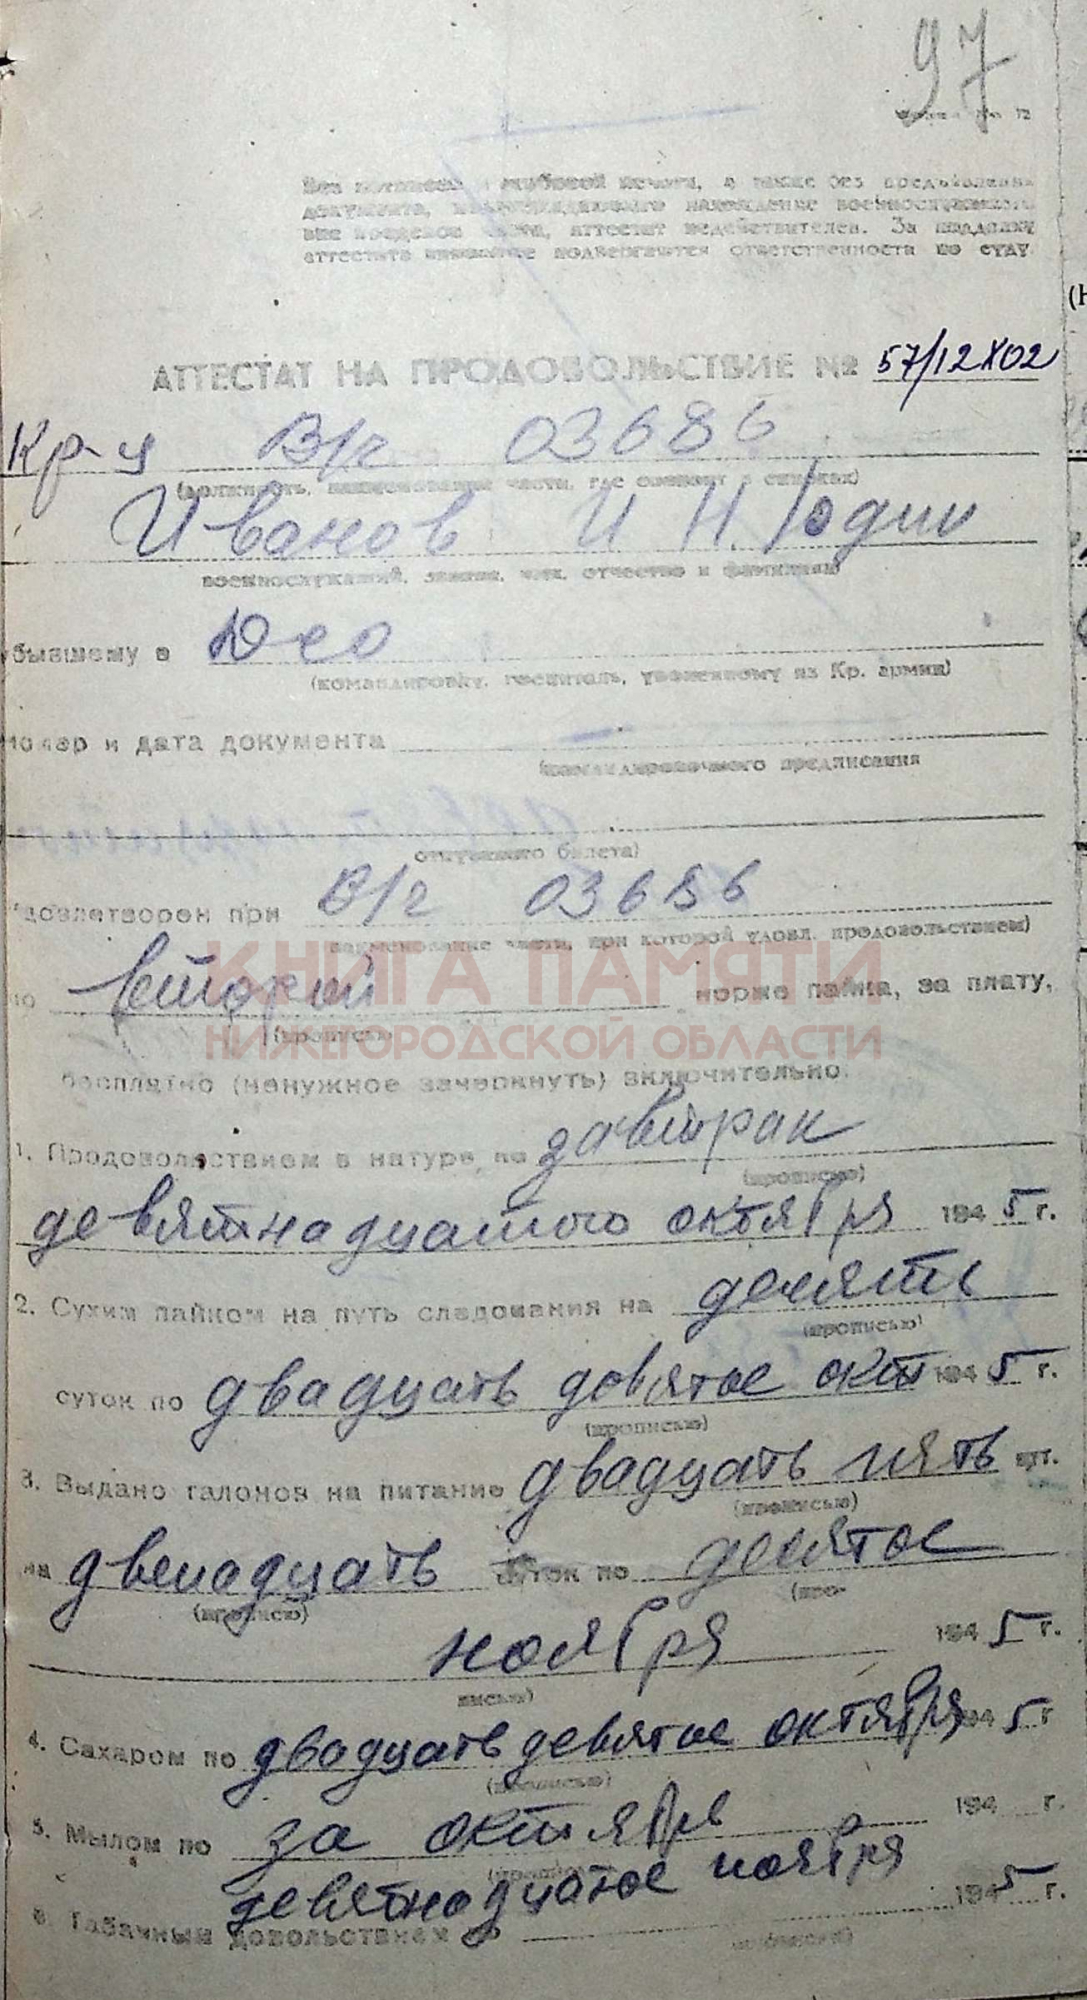 97
Без подписей и гербовой печати, а также без предъявления
документа, подтверждающего нахождение военнослужащего
вне пределов части, аттестат недействителен. За подделку
аттестата виновные подвергаются ответственности по суду.
АТТЕСТАТ НА ПРОДОВОЛЬСТВИЕ №
Кр-ц В/ч 03686
(должность, наименование части, где состоит в списках)
Иванов И Н /один
военнослужащий, звание, имя, отчество и фамилия)
бывшему в
(командировку, госпиталь, уволенному из Кр. армии)
номер и дата документа
(командировочного предписания
отпускного билета)
довлетворен при В/ч 03686
наименование части, при которой удовл. продовольствием)
по второй норме пайка, за плату,
КНИГА ПАМЯТИ
(прописью)
НИЖЕГОРОДСКОЙ ОБЛАСТИ
бесплатно (ненужное зачеркнуть) включительно.
1. Продовольствием в натуре по завтрак
(прописью)
девятнадцатого октября 1945 г.
2. Сухим пайком на путь следования на десять
(прописью)
суток по двадцать девятое окт 1945 г.
(прописью)
3. Выдано талонов на питание двадцать пять шт.
(прописью)
на двенадцать суток по десятое
(прописью) (про-
ноября 1945 г.
писью)
4. Сахаром по двадцать девятое октября 1945 г
(прописью)
5. Мылом по за октябрь 194 г.
(прописью)
девятнадцатое ноября 1945 г.
6. Табачным довольствием
(прописью)